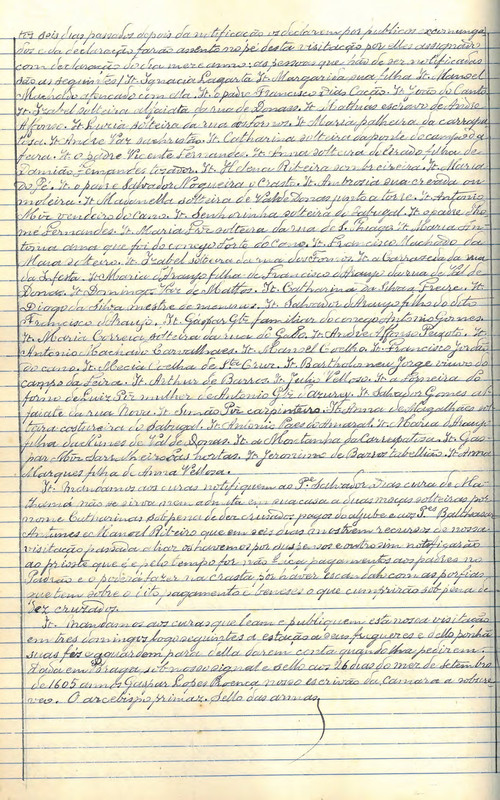 tos seis dias passados depois da notificação os declarem por publicos excomunga
dos e da declaração farão asento no pé desta visitação por elles assignado
com declaração do dia mez e anno: as pessoas que hão de ser notificadas
são as seguintes: It. Ignacia Lagarta. It. Margarida sua filha. It. Manoel
Munhós afamado com ella. It. o padre Francisco Dias Cação. It. João do Canto.
It. Izabel solteira da rua de Donas. It. Mathias escravo de André
Affonso. It. Luzia solteira da rua dos Fornos. It. Maria palheira da carrapa
tosa. It. André Paz sombrista. It. Catharina solteira da ponte do campo da
feira. It. o padre Vicente Fernandes. It. Anna solteira criada filha de
Damião Fernandes tozador. It. Helena Ribeira sombreireira. It. Maria
Dopé. It. o padre Salvador Nogueira e Crasto. It. Ambrosia sua creada ou
moleira. It. Madanella solteira de Val de Donas junto a torre. It. Antonio
Alvz vendeiro do cano. It. Senhorinha solteira do Sabugal. It. o padre Tho
mé Fernandes. It. Maria Piz solteira da rua de S. Thiago. It. Maria An
tonia ama que foi do conego forte do cano. It. Francisco Machado da
Maia solteiro. It. Izabel solteira da rua dos fornos. It. a Carrasca da rua
da Infesta. It. Maria d'Araujo filha de Francisco d'Araujo da rua de Val de
Donas. It. Domingos Vaz de Mattos. It. Catharina da Silva a Freire. It.
Diogo da Silva mestre de meninos. It. Salvador d'Araujo filho do dito
Francisco d'Araujo. It. Gaspar Glz familiar do conego Antonio Gomes.
It. Maria Correia solteira da rua do Gallo. It. André Affonso Peixoto. It.
Antonio Machado Carvalhaes. It. Manoel Coelho. It. Francisco Jordão
do cano. It. Mecia Coelha de Sta Cruz. It. Bartholomeu Jorge viuvo do
campo da feira. It. Arthur de Barros. It. Julião Velloso. It. a forneira do
forno de Luiz Piz mulher de Antonio Glz Caruru. It. Salvador Gomes al
faiate da rua Nova. It. Simão Piz carpinteiro. It. Anna de Magalhães sol
teira costureira do Sabugal. It. Antonio Paes do Amaral. It. Maria d'Araujo
filha de Nunes de Val de Donas. It. a Montanha da Carrapatosa. It. Gas
par Alvz Sarilheiro das hortas. It. Jeronimo de Barros tabellião. It. Anna
Marques filha de Anna Vellosa.
It. Mandamos aos curas notifiquem ao Pe Salvador Dias cura de Ma
thamá não se sirva nem admitta em sua casa a duas moças solteiras por
nome Catharinas sob pena de dez cruzados pagos do aljube e aos Pes Balthasar
Antunes e Manoel Ribeiro que em seis dias mostrem recurso de nossa
visitação passada aliaz os havemos por suspensos e outrosim notificarão
ao prioste que é e pelo tempo for não faça pagamentos aos padres no
Pássão e o poderá fazer na crasta por haver escandalo com as porfias
que tem sobre o dito pagamento e beneses o que cumprirão sob pena de
dez cruzados.
It. Mandamos aos curas que leam e publiquem esta nossa visitação
em tres domingos logo seguintes a estação a seus freguezes e dello ponhão
suas fés e guardem para della darem conta quando lh'a pedirem.
Dada em Braga sob nosso signal e sello aos 26 dias do mez de setembro
de 1605 annos Gaspar Lopes Roença nosso escrivão da camara a sobscre
veo. O arcebispo primaz. Sello das armas